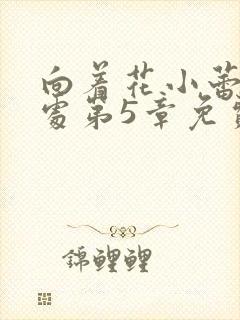 向着花小蕾
处第5章免费
锦鲤鲤